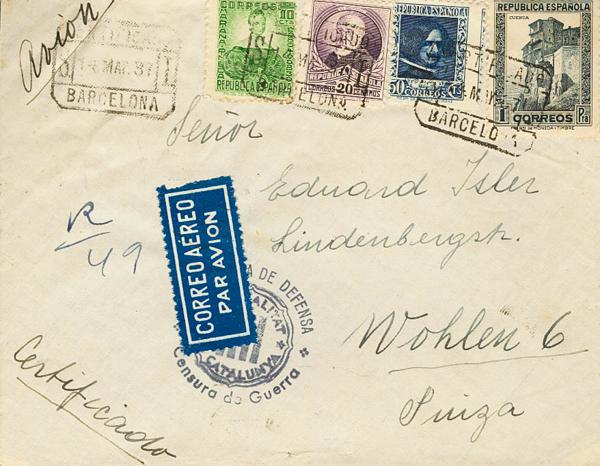 Avión
14 MAR. 37
BARCELONA
CORREOS 10 CTS
REPUBLICA ESPAÑOLA
CORREOS 20 CENTIMOS
REPUBLICA ESPAÑOLA
50 CORREOS CTS
REPUBLICA ESPAÑOLA
CUENCA
1 CORREOS Pta
BARCELONA
BARCELONA
Señor
Eduard Isler
Lindenbergstr.
Wohlen 6
Suiza
R
49
CORREO AÉREO
PAR AVION
DE DEFENSA
CATALUNYA
Censura de Guerra
Certificado